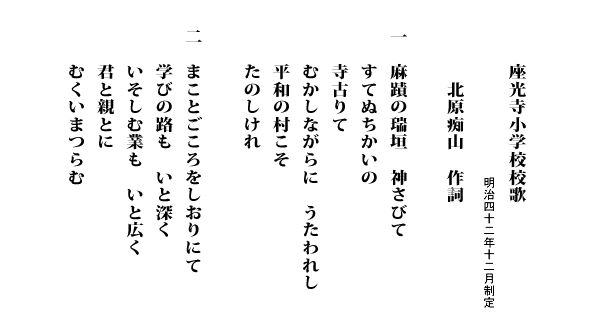 座光寺小学校校歌
明治四十二年十二月制定
北原痴山　作詞
一
麻蹟の瑞垣　神さびて
すてぬちかいの
寺古りて
むかしながらに　うたわれし
平和の村こそ
たのしけれ
二
まことごころをしおりにて
学びの路も　いと深く
いそしむ業も　いと広く
君と親とに
むくいまつらむ